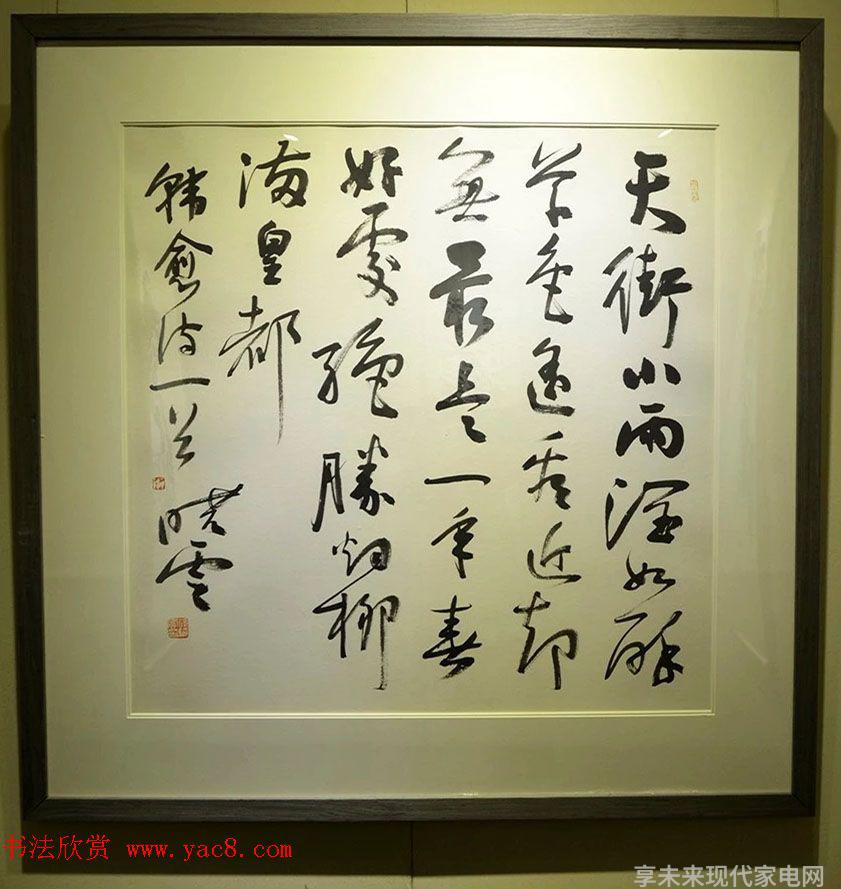 天街小雨润如酥
草色遥看近却
無最是一年春
好處绝勝烟柳
满皇都
韩愈诗一首
晓雲
书法欣赏 www.yac8.com
享未来现代家电网